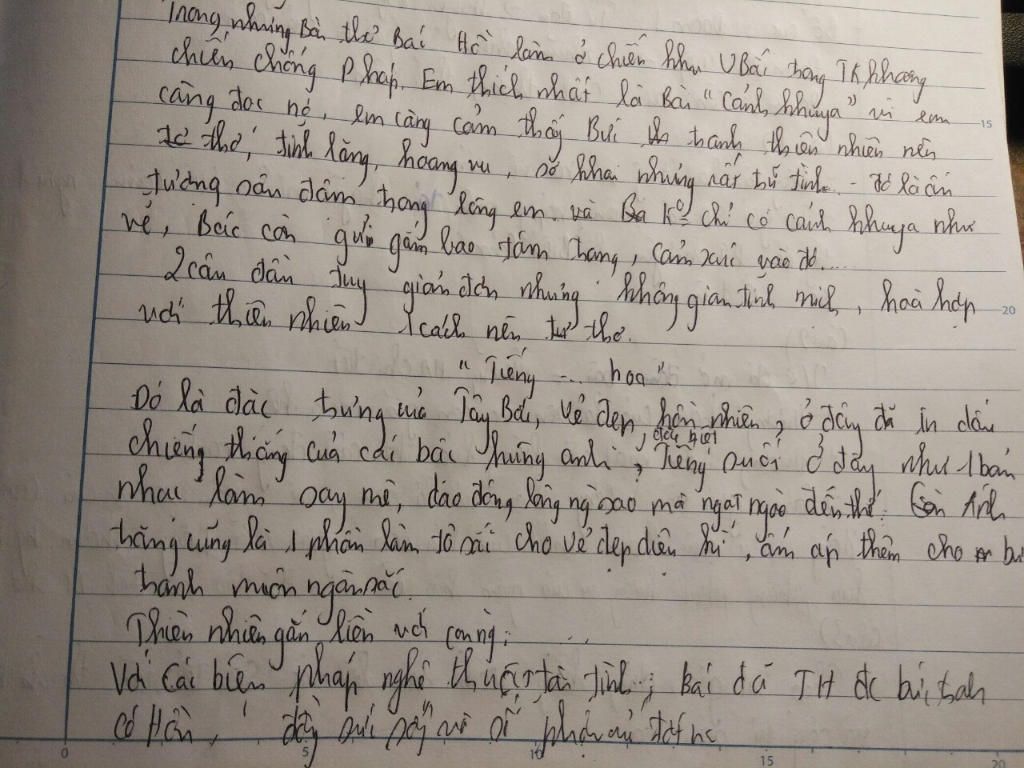 Trong những Bài thơ Bác Hồ làm ở chiến khu VBắc trong TK kháng
chiến chống Pháp, Em thích nhất là Bài "Cảnh khuya" vì em
càng đọc nó, em càng cảm thấy Bức tranh thiên nhiên nên
thơ, tĩnh lặng, hoang vu, sơ khai nhưng rất trữ tình. - đó là ấn
tượng sâu đậm trong lòng em. và K° chỉ có cảnh khuya như
vẽ, Bác còn gửi gắm bao tâm trạng, cảm xúc vào đó....
2 câu đầu tuy giản đơn nhưng không gian tĩnh mịch, hoà hợp
với thiên nhiên 1 cách nên thơ.
"Tiếng ... hoa"
Đó là đặc trưng của Tây Bắc, vẻ đẹp hồn nhiên, ở đây đã in dấu
chiếng thắng của các bậc hùng anh, Tiếng suối ở đây như 1 bản
nhạc làm say mê, dào động lòng ng sao mà ngạt ngào đến thế. Còn Ánh
trăng cũng là 1 phần làm tô sắc cho vẻ đẹp diệu kì, ấm áp thêm cho bức
tranh muôn ngàn sắc.
Thiên nhiên gắn liền với con ng: ...
Với các biện pháp nghệ thuật tài tình; Bác đã TH đc bức tranh
có Hồn, đầy
0 5 10 15 20
15
20